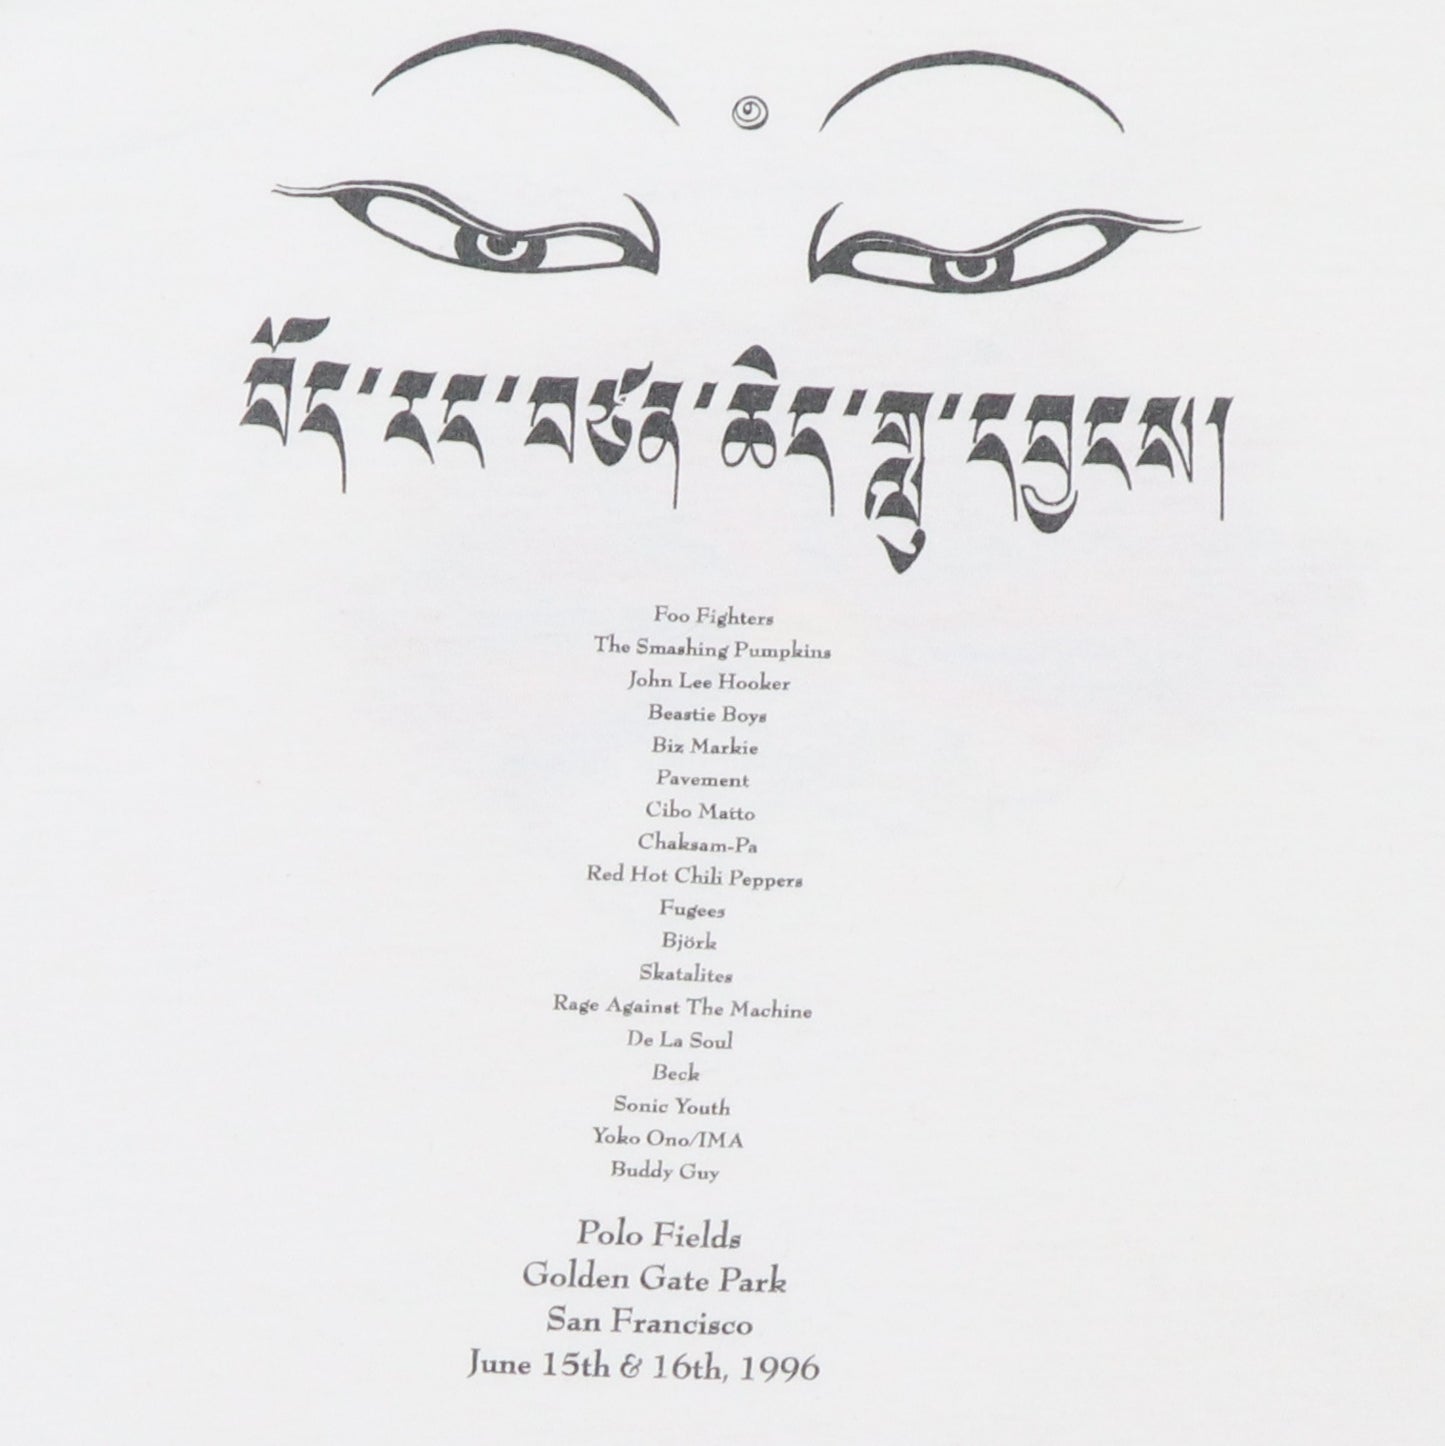 བོད་རང་བཙན་ཆེད་གླུ་དབྱངས།
Foo Fighters
The Smashing Pumpkins
John Lee Hooker
Beastie Boys
Biz Markie
Pavement
Cibo Matto
Chaksam-Pa
Red Hot Chili Peppers
Fugees
Björk
Skatalites
Rage Against The Machine
De La Soul
Beck
Sonic Youth
Yoko Ono/IMA
Buddy Guy
Polo Fields
Golden Gate Park
San Francisco
June 15th & 16th, 1996